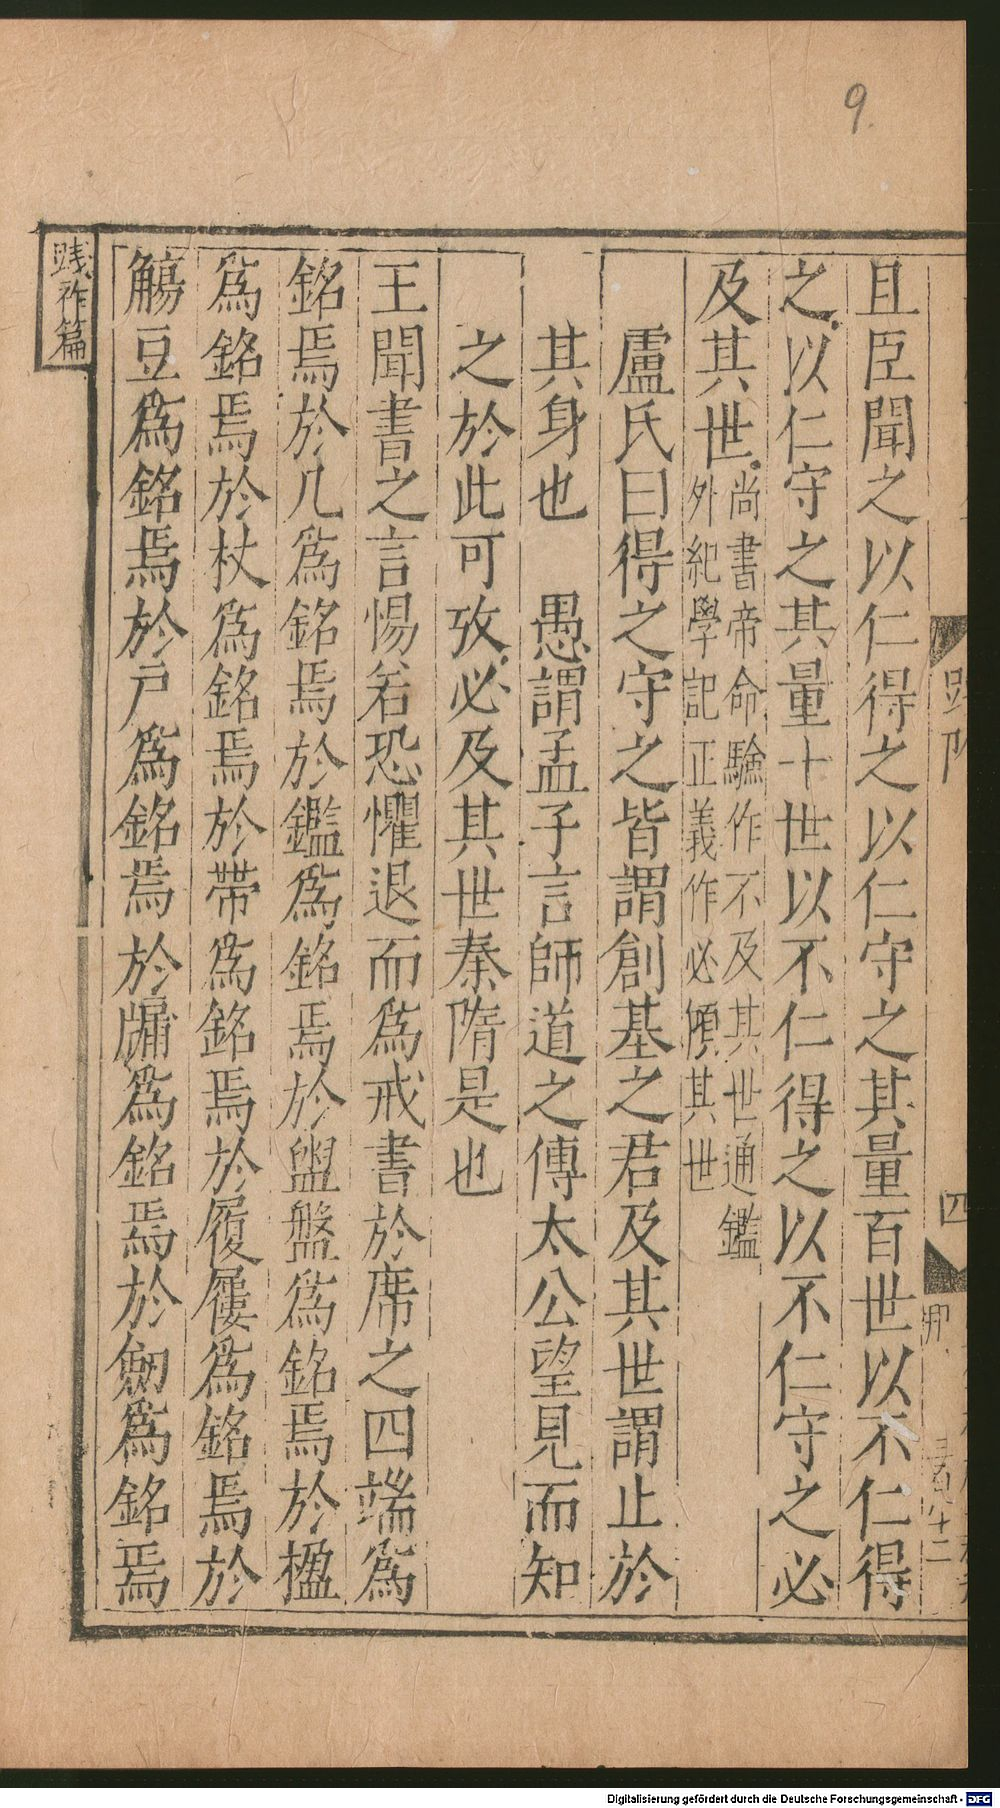 9.
且臣聞之以仁得之以仁守之其量百世以不仁得
之以仁守之其量十世以不仁得之以不仁守之必
及其世
尚書帝命驗作不及其世通鑑
外紀學記正義作必傾其世
盧氏曰得之守之皆謂創基之君及其世謂止於
其身也　愚謂孟子言師道之傳太公望見而知
之於此可攷必及其世秦隋是也
王聞書之言惕若恐懼退而爲戒書於席之四端爲
銘焉於几爲銘焉於鑑爲銘焉於盥盤爲銘焉於楹
爲銘焉於杖爲銘焉於帶爲銘焉於履屨爲銘焉於
觴豆爲銘焉於戶爲銘焉於牖爲銘焉於劒爲銘焉
践祚篇
四
Digitalisierung gefördert durch die Deutsche Forschungsgemeinschaft - DFG